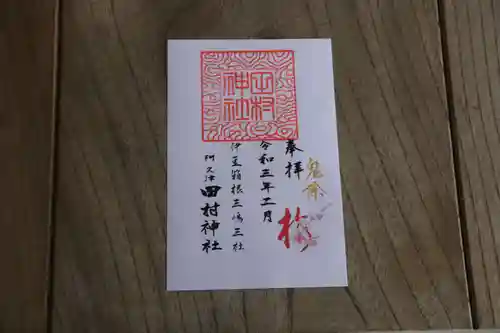 田村
神社
奉拝
鬼除
令和三年二月
伊豆箱根三嶋三社
阿久津
田村神社